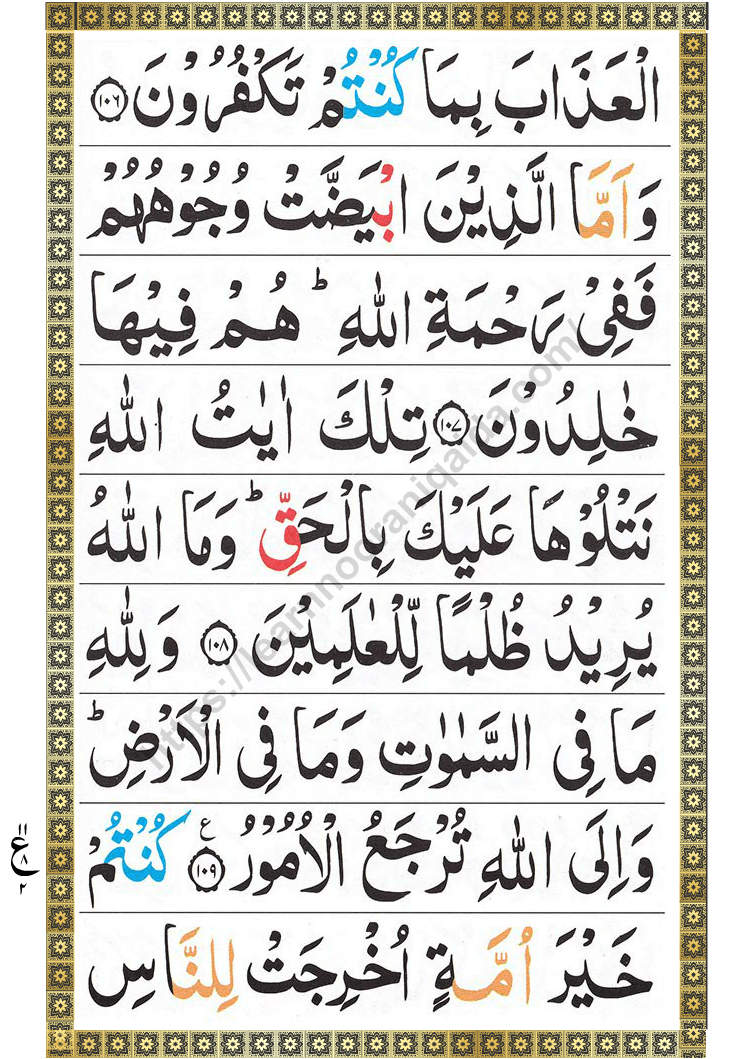 الْعَذَابَ بِمَا كُنْتُمْ تَكْفُرُوْنَ ۝۱۰۶
وَاَمَّا الَّذِيْنَ ابْيَضَّتْ وُجُوْهُهُمْ
فَفِيْ رَحْمَةِ اللّٰهِ ؕ هُمْ فِيْهَا
خٰلِدُوْنَ ۝۱۰۷ تِلْكَ اٰيٰتُ اللّٰهِ
نَتْلُوْهَا عَلَيْكَ بِالْحَقِّ ؕ وَمَا اللّٰهُ
يُرِيْدُ ظُلْمًا لِّلْعٰلَمِيْنَ ۝۱۰۸ وَلِلّٰهِ
مَا فِي السَّمٰوٰتِ وَمَا فِي الْاَرْضِ ؕ
وَاِلَى اللّٰهِ تُرْجَعُ الْاُمُوْرُ ۝۱۰۹ ع كُنْتُمْ
۱۱
ع ۸
۲
خَيْرَ اُمَّةٍ اُخْرِجَتْ لِلنَّاسِ
https://learnnooraniqaida.com/